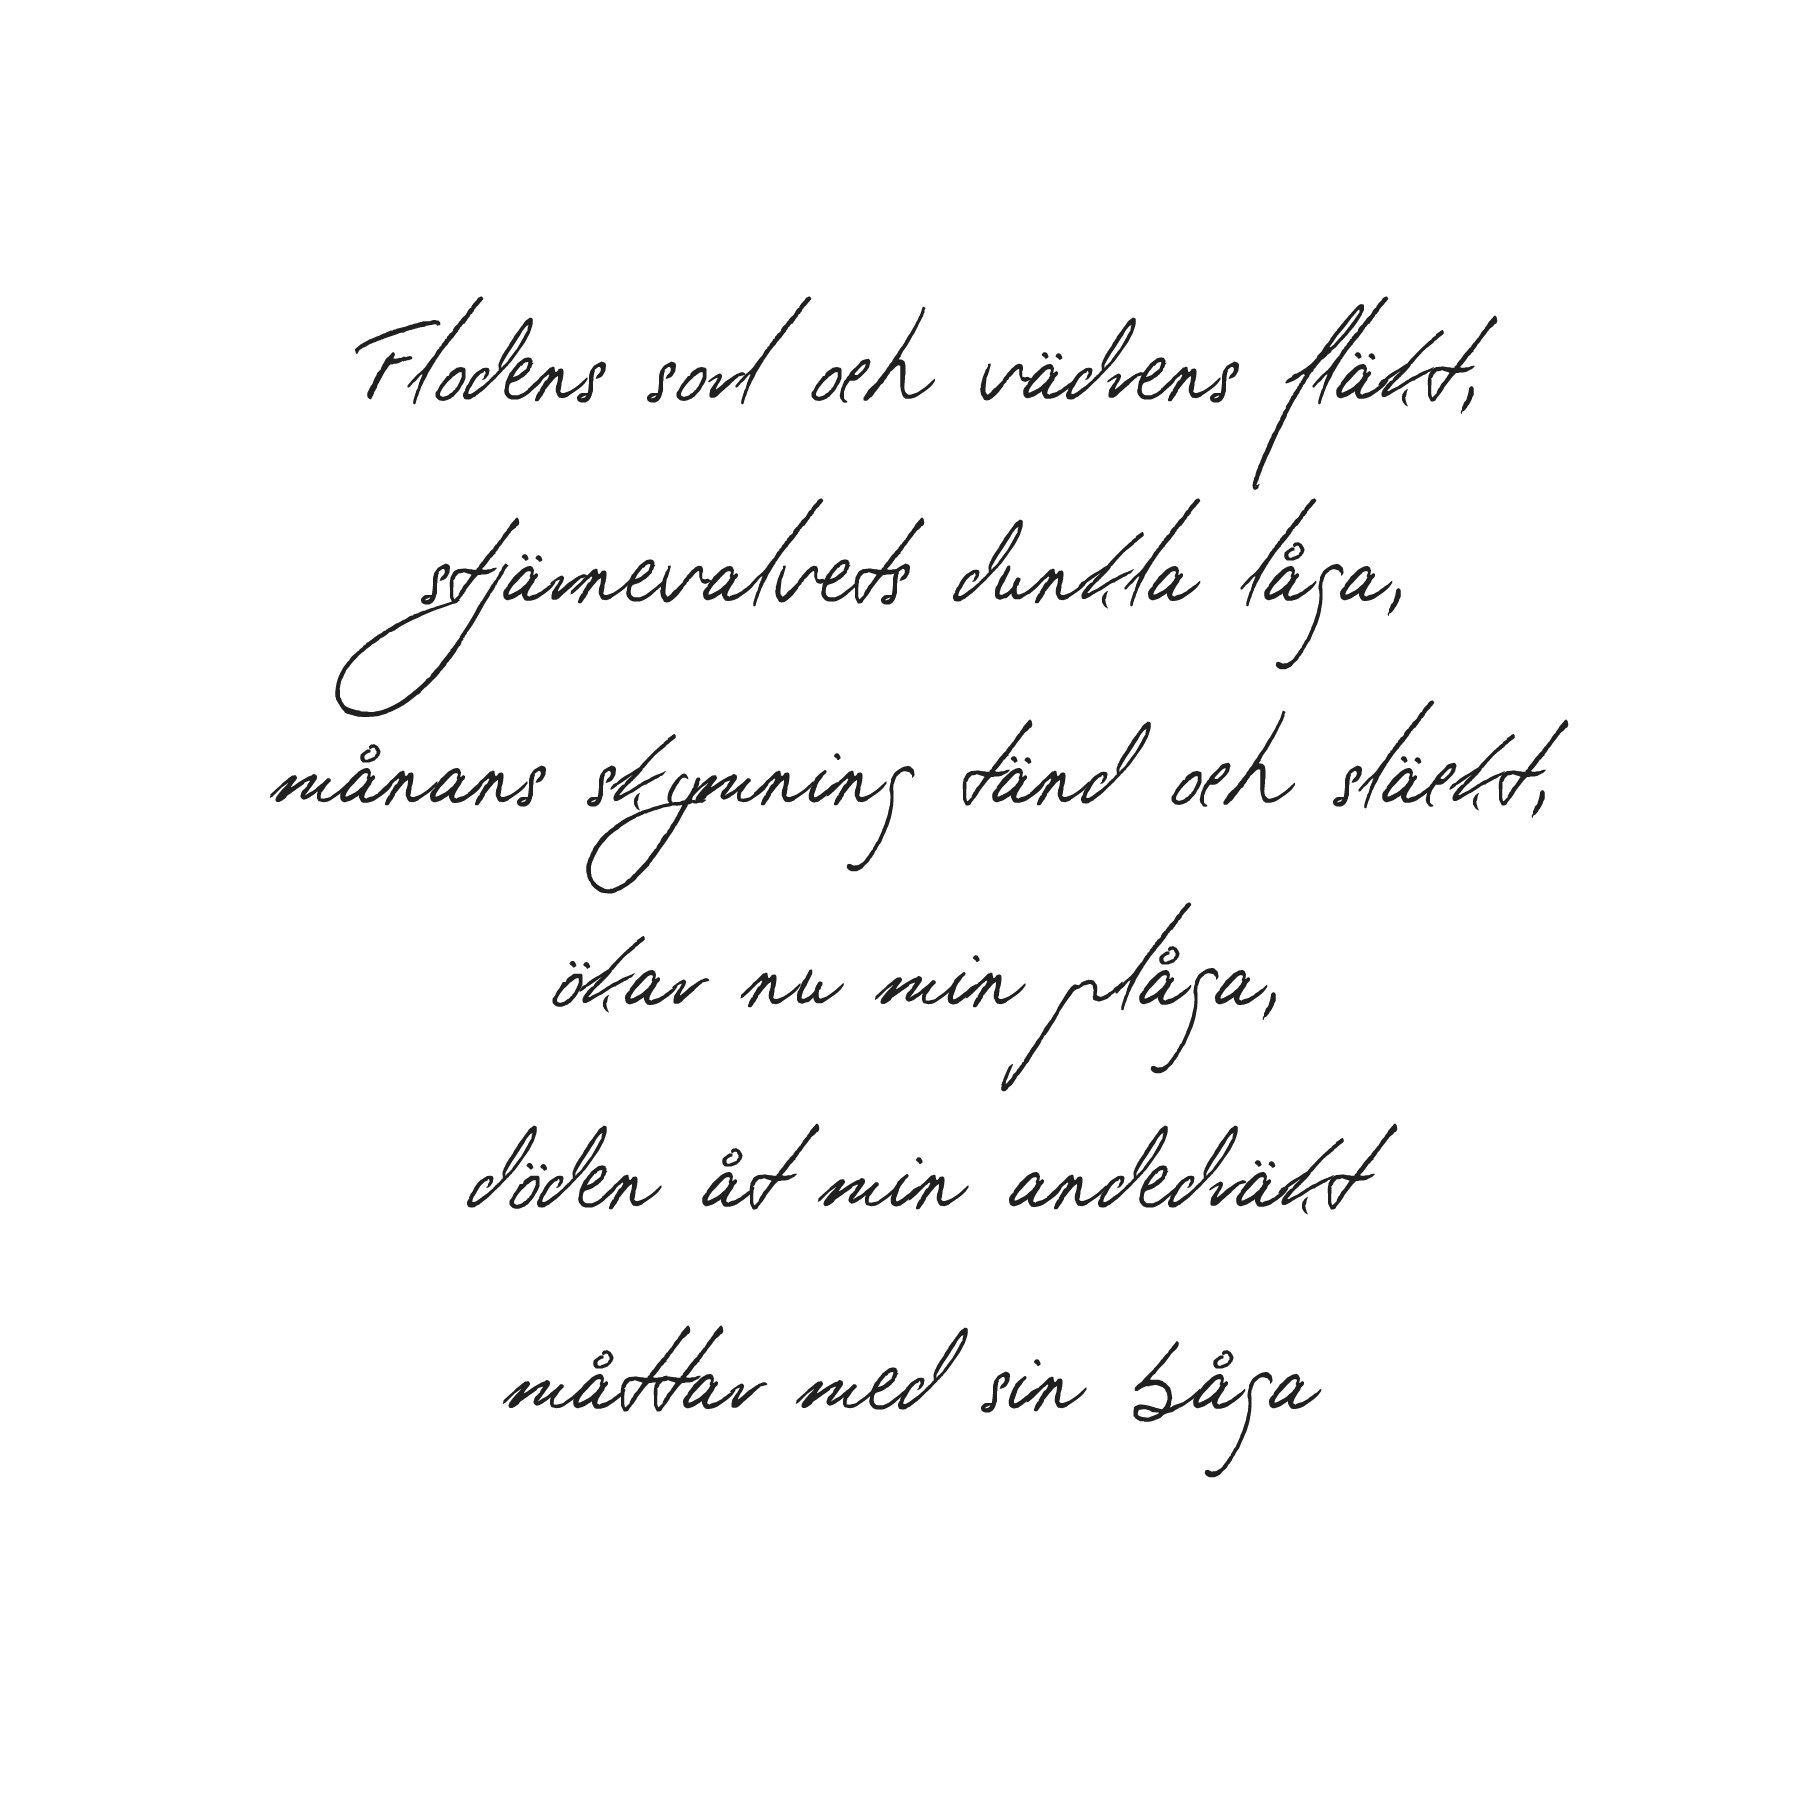 Flodens sorl och vädrens fläkt,
stjärnevalvets dunkla låga,
månans skymning tänd och släckt,
ökar nu min plåga,
döden åt min andedräkt
måttar med sin båga